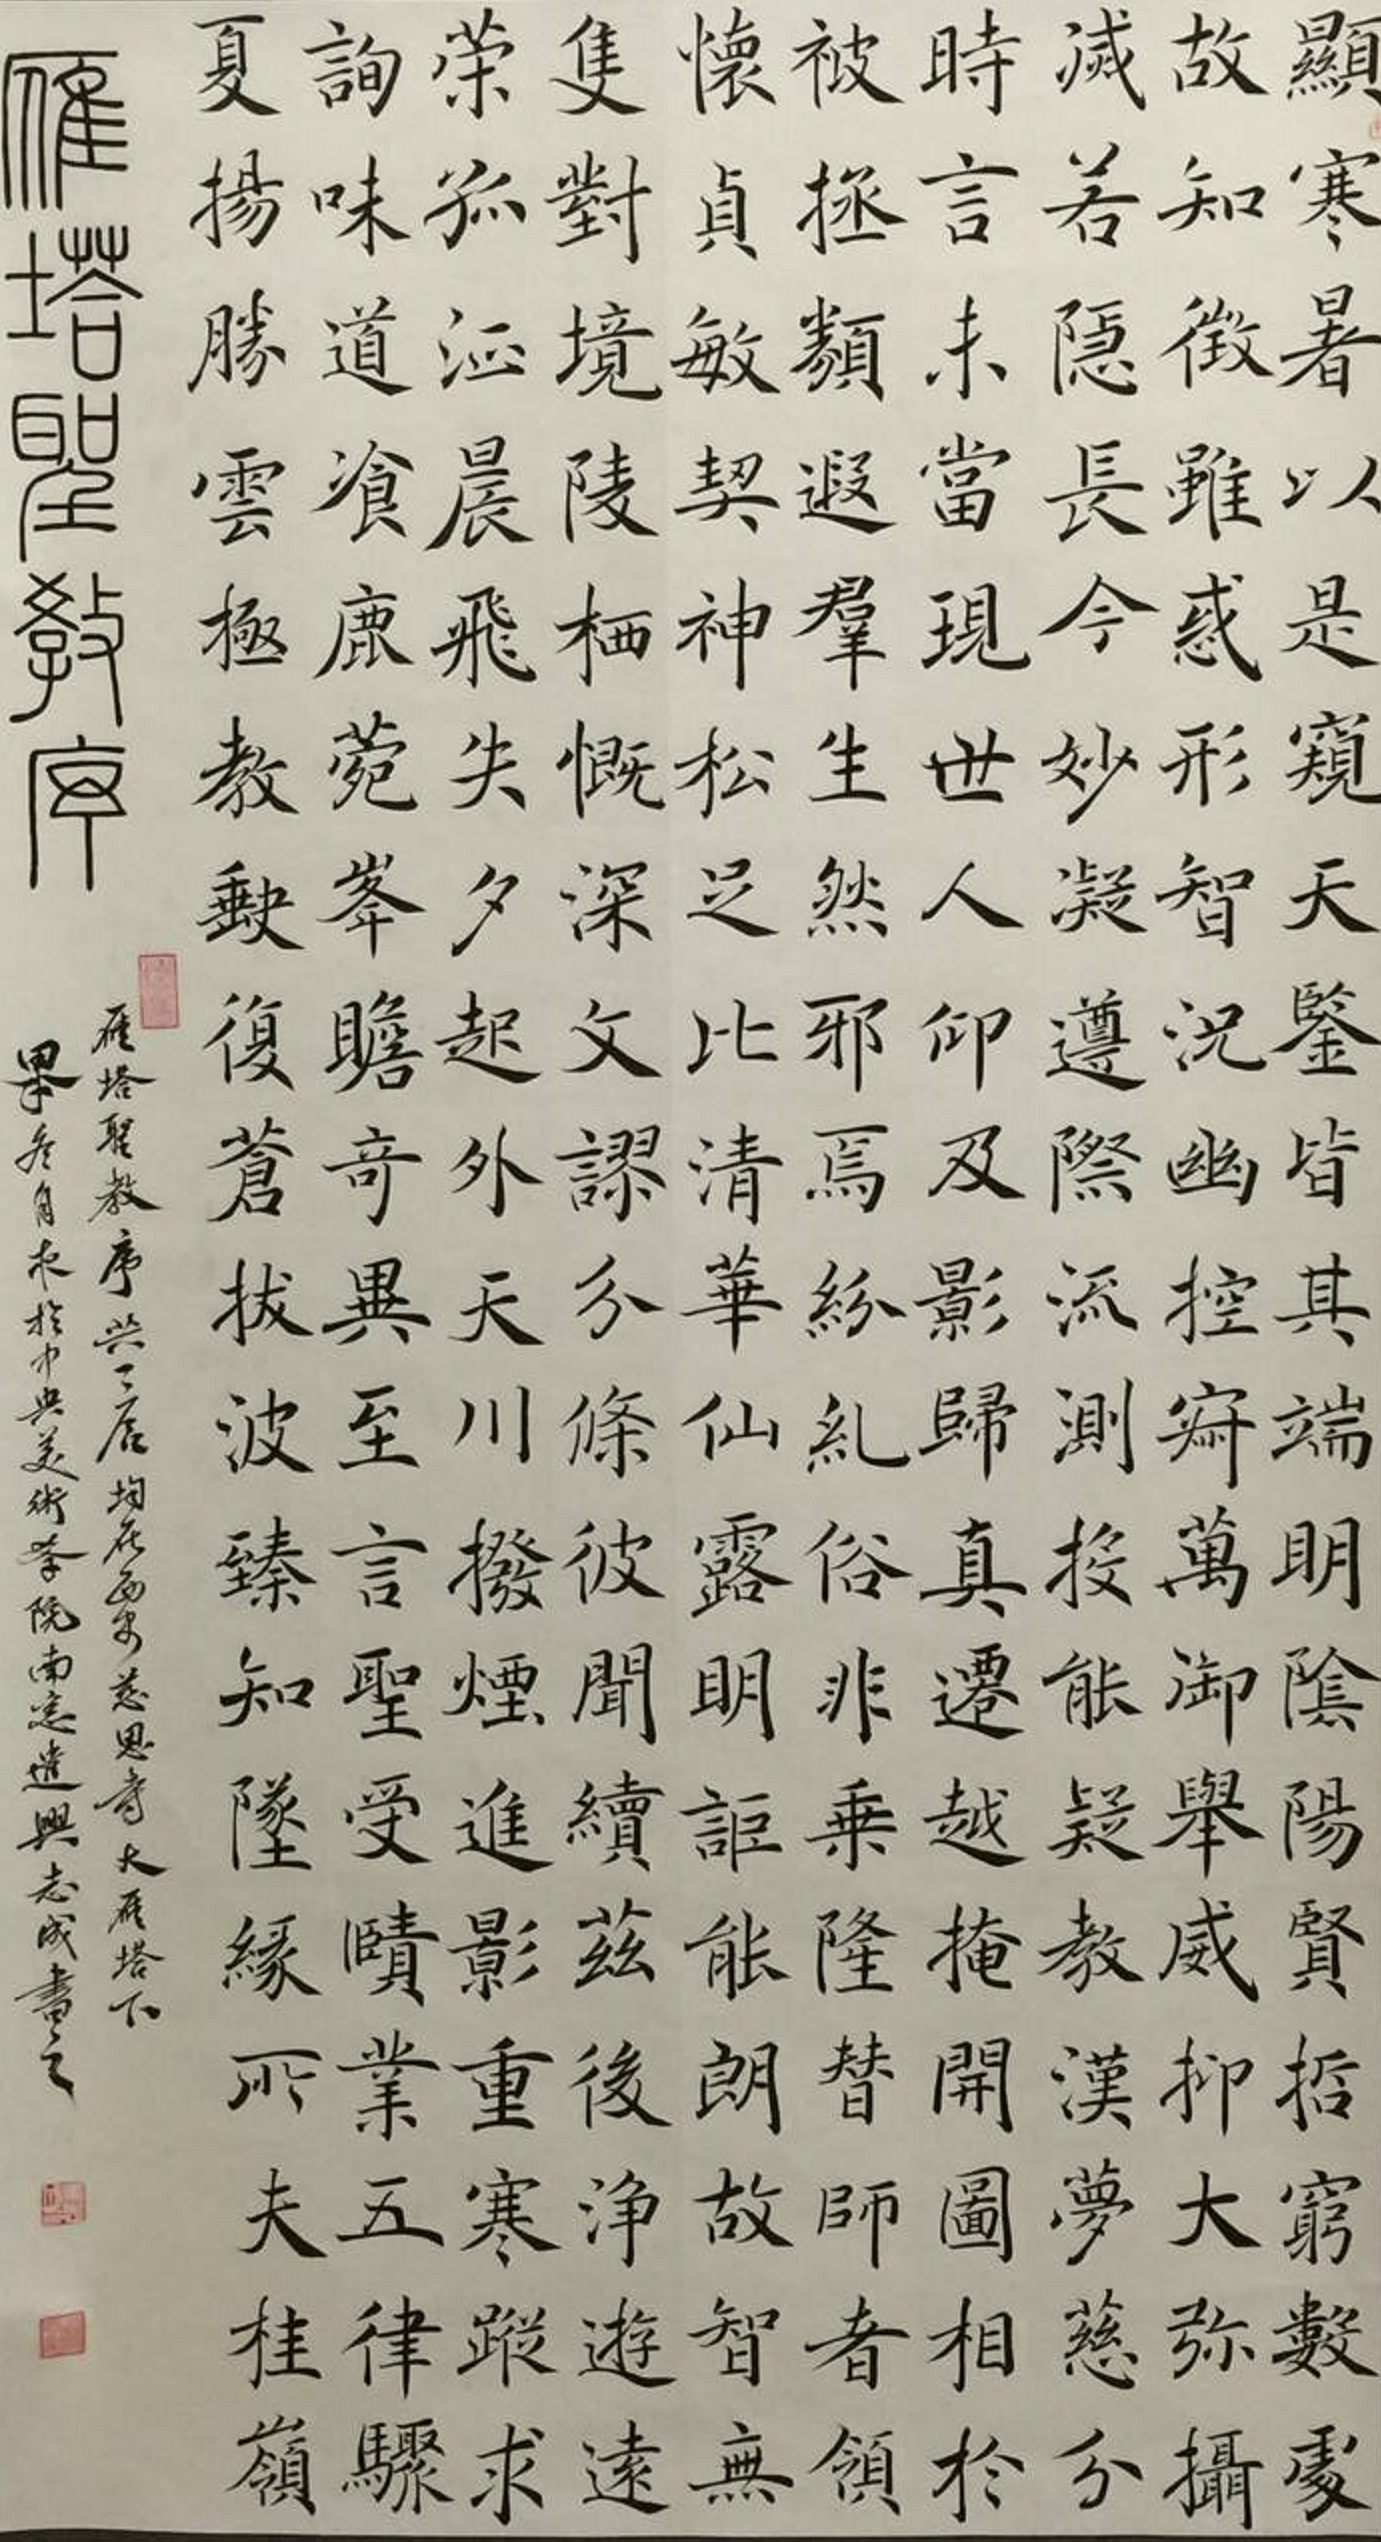 顯寒暑以是窺天鑒皆其端明陰陽賢哲窮數處
故知徵雖惑形智況幽控寂萬御舉威抑大弥攝
滅若隱長今妙凝遵際流測投能疑教漢夢慈分
時言未當現世人仰及影歸真遷越掩開圖相於
被拯類遐羣生然邪焉紛乱俗非乗隆替師者領
懷貞敏契神松足比清華仙露明詎能朗故智無
隻對境陵栖慨深文謬分條彼聞續茲後浄遊遠
荣孤征晨飛失夕起外天川撥煙進影重寒蹤求
詢味道飡鹿菀峯瞻奇異至言聖受賾業五律驟
夏揚勝雲極教缺復蒼拔波臻知墜緣所夫桂嶺
雁塔聖教序
雁塔聖教序共二店均在西安慈恩寺大雁塔下
畢冬月夜於中央美術學院南窓遣興志成書之